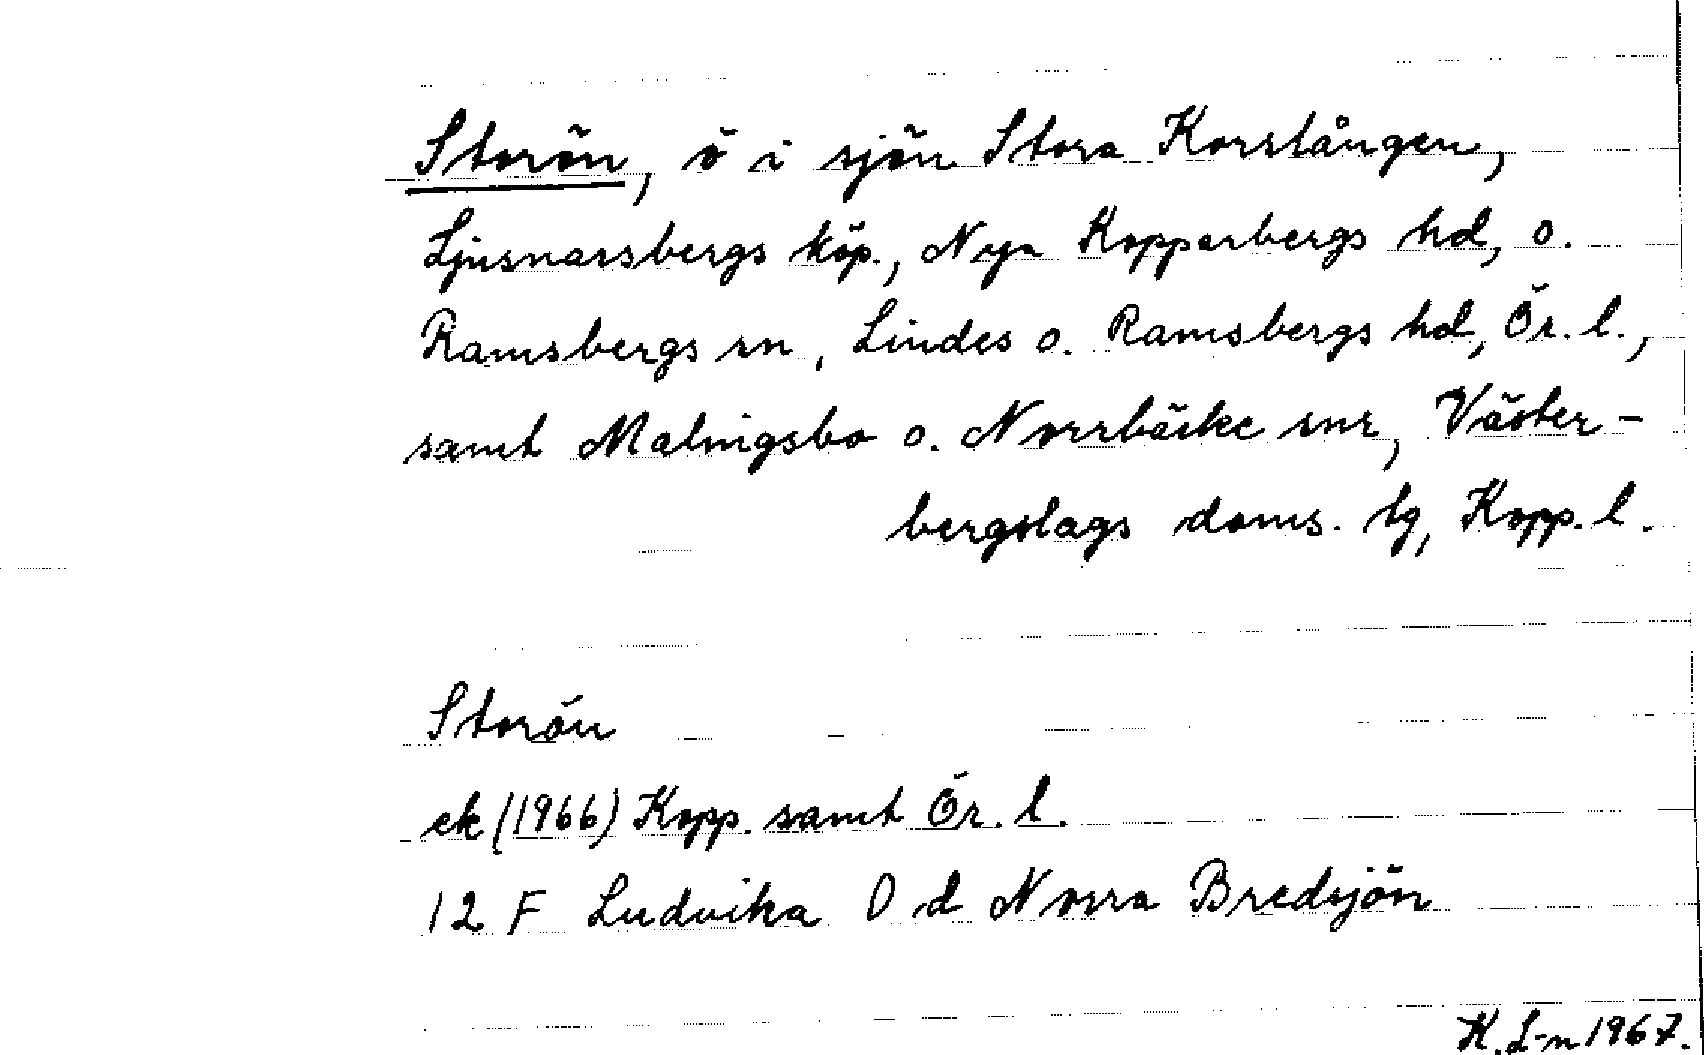 Storön, ö i sjön Stora Korslången,
Ljusnarsbergs köp., Nya Kopparbergs hd, o.
Ramsbergs sn, Lindes o. Ramsbergs hd, Ör. l.,
samt Malingsbo o. Norrbärke snr, Väster-
bergslags doms. tg, Kopp. l.
Storön
ek (1966) Kopp. samt Ör. l.
12 F Ludvika 0 d Norra Bredsjön
K. L-n 1967.